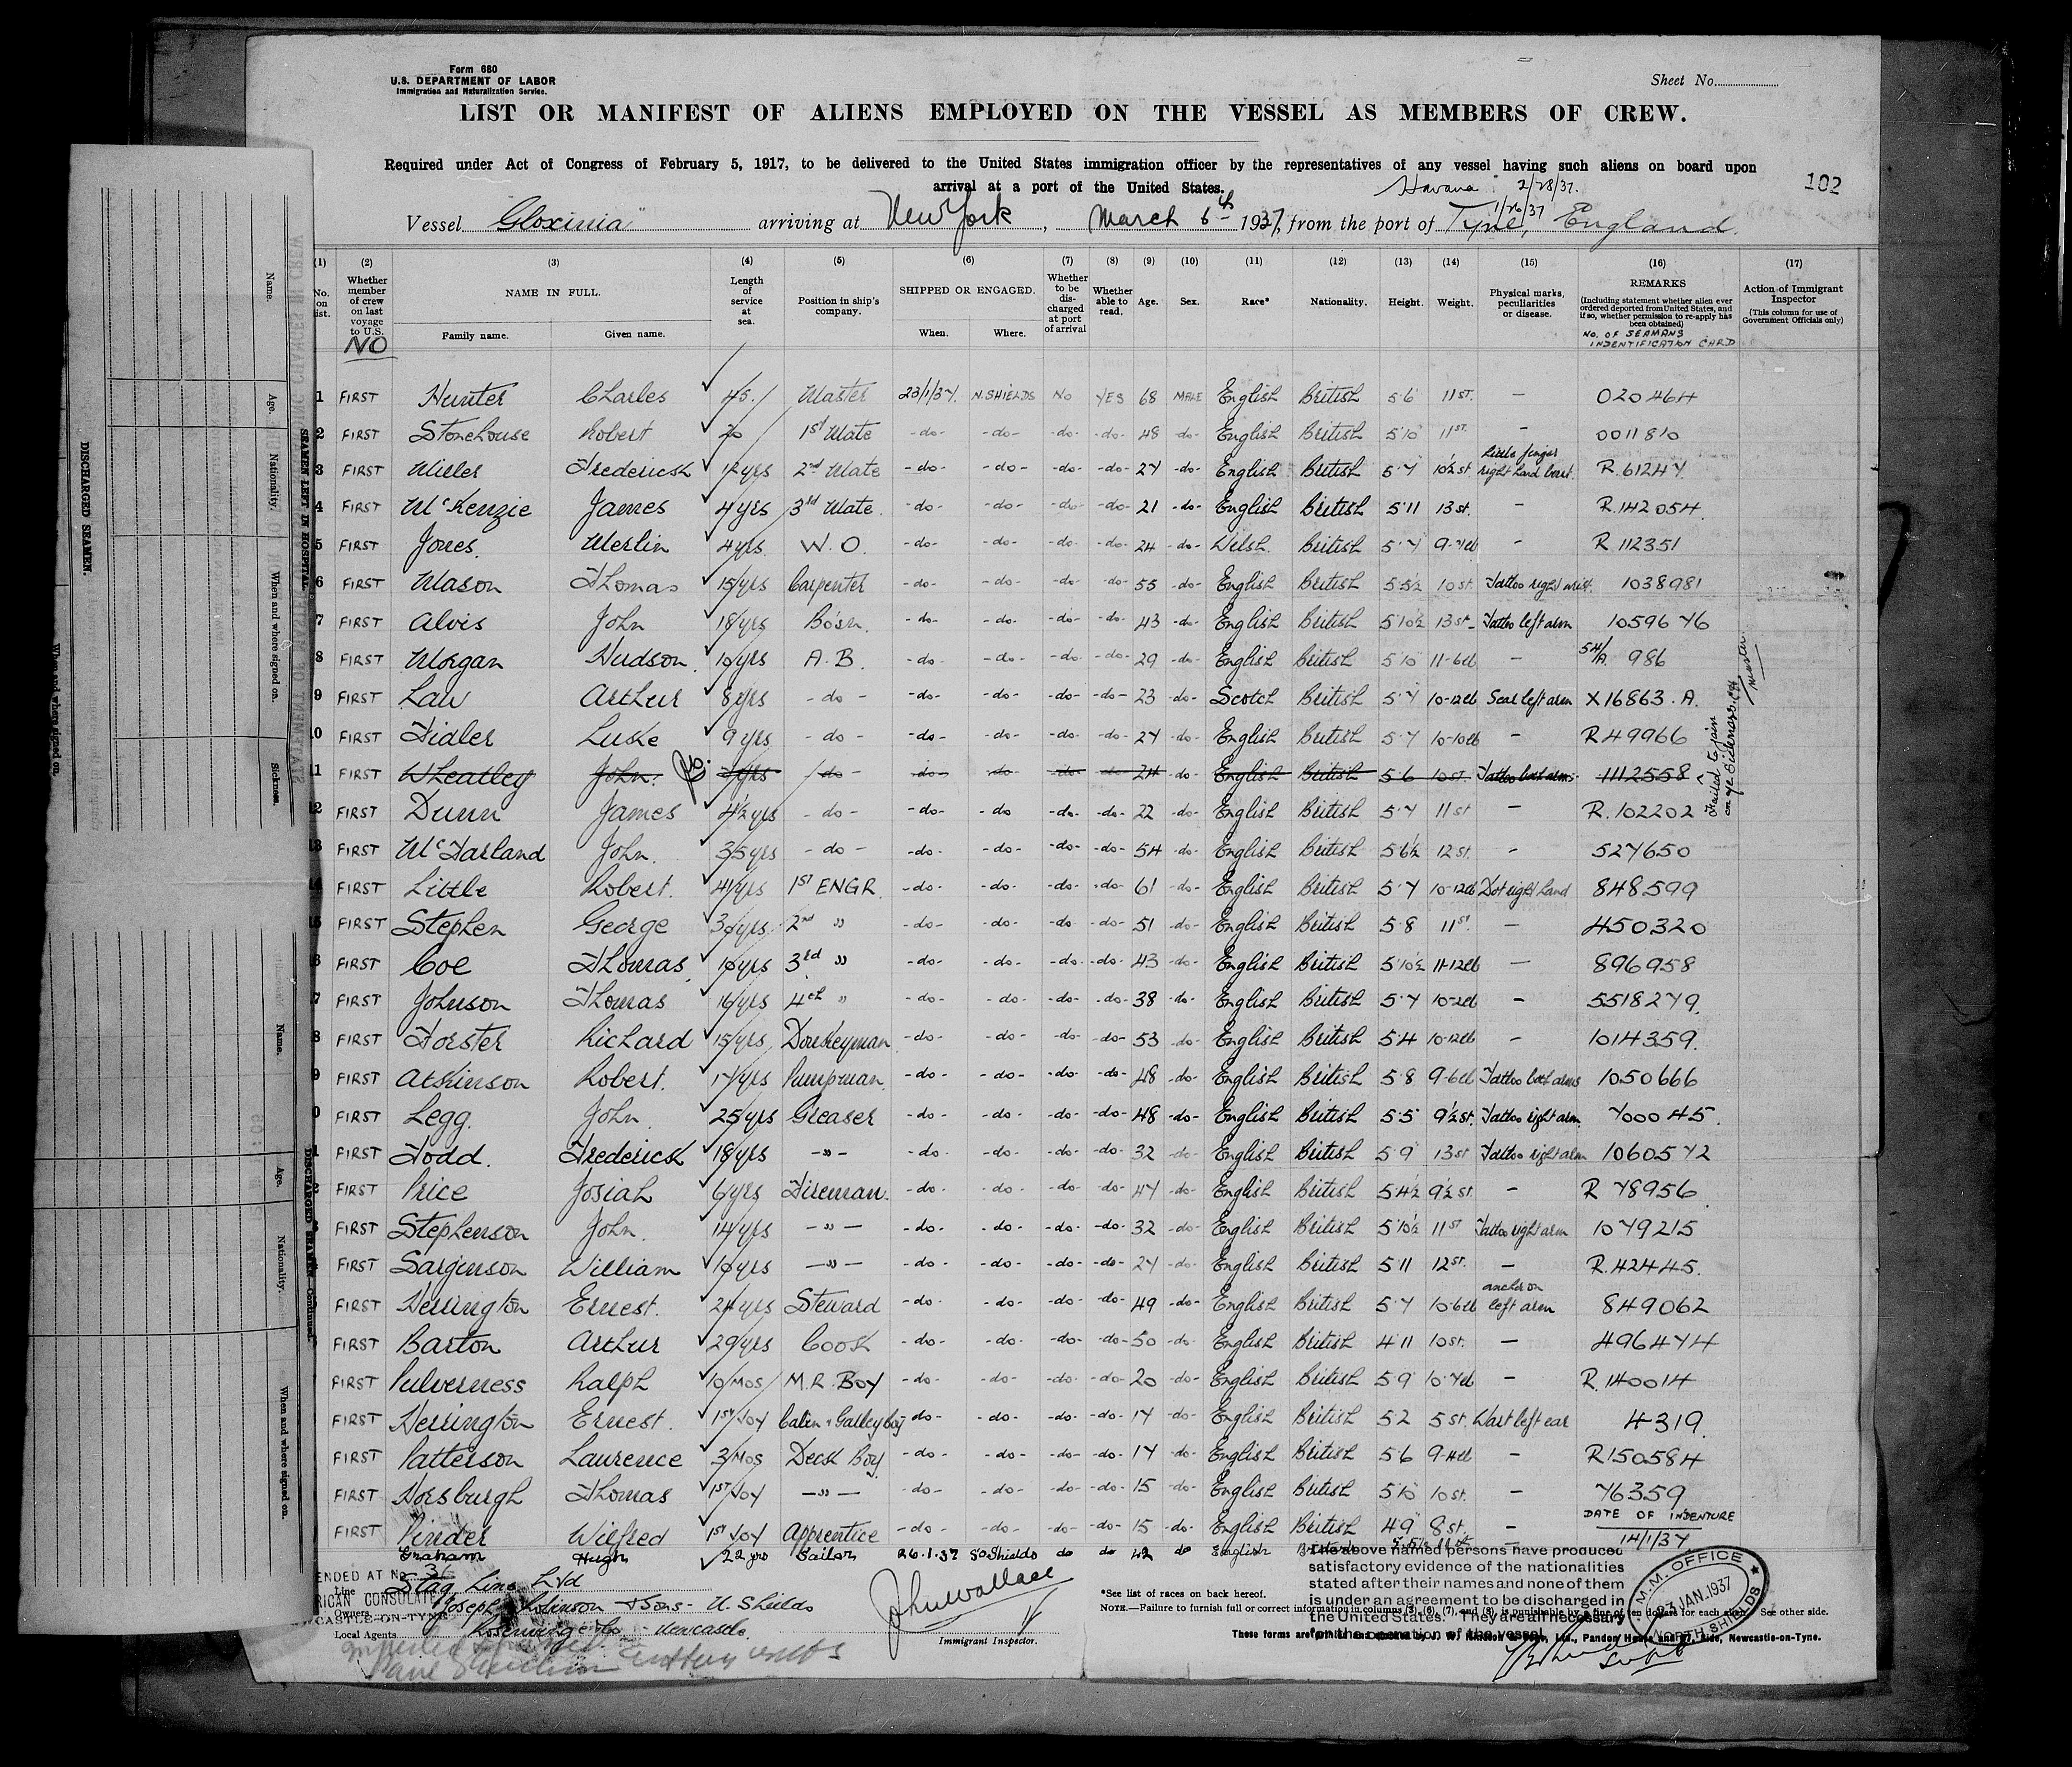 Form 680
U.S. DEPARTMENT OF LABOR
Immigration and Naturalization Service.
Sheet No.
LIST OR MANIFEST OF ALIENS EMPLOYED ON THE VESSEL AS MEMBERS OF CREW.
Required under Act of Congress of February 5, 1917, to be delivered to the United States immigration officer by the representatives of any vessel having such aliens on board upon
arrival at a port of the United States.
Havana 2/28/37.
102
1/26/37
Vessel "Gloxinia" arriving at New York, March 6th 1937, from the port of Tyne, England.
(1) (2) (3) (4) (5) (6) (7) (8) (9) (10) (11) (12) (13) (14) (15) (16) (17)
No. on list. Whether member of crew on last voyage to U.S. NO NAME IN FULL. Family name. Given name. Length of service at sea. Position in ship's company. SHIPPED OR ENGAGED. When. Where. Whether to be discharged at port of arrival Whether able to read. Age. Sex. Race* Nationality. Height. Weight. Physical marks, peculiarities or disease. REMARKS (Including statement whether alien ever ordered deported from United States, and if so, whether permission to re-apply has been obtained) NO. OF SEAMANS INDENTIFICATION CARD Action of Immigrant Inspector (This column for use of Government Officials only)
1 FIRST Hunter Charles 45. Master 23/1/37. N. SHIELDS NO YES 68 MALE English British 5·6 11 ST. – 020464
2 FIRST Stonehouse Robert 1st Mate -do- -do- -do- -do- 48 -do- English British 5·10 11 ST. – 0011810
3 FIRST Miller Frederick 12 yrs 2nd Mate -do- -do- -do- -do- 27 -do- English British 5·7 10½ st Little finger right hand bent. R.61247.
4 FIRST McKenzie James 4 yrs 3rd Mate. -do- -do- -do- -do- 21 -do- English British 5·11 13 st. – R.142054.
5 FIRST Jones. Merlin 4 yrs. W. O. -do- -do- -do- -do- 24 -do- Welsh. British 5·7 9-7lb – R. 112351
6 FIRST Mason Thomas 15 yrs Carpenter -do- -do- -do- -do- 55 -do- English British 5·5½ 10 st. Tattoo right wrist. 1038981
7 FIRST Alvis John 18 yrs Bo'sn. -do- -do- -do- -do- 43 -do- English British 5·10½ 13 st. Tattoo left arm 1059676
8 FIRST Morgan Hudson. 10 yrs A. B. -do- -do- -do- -do- 29 -do- English British 5·10 11-6lb – 54/A. 986
9 FIRST Law Arthur 8 yrs -do- -do- -do- -do- -do- 23 -do- Scotch British 5·7 10-12lb Scar left arm X16863.A.
10 FIRST Fidler Luke 9 yrs. -do- -do- -do- -do- -do- 27 -do- English British 5·7 10-10lb – R49966
11 FIRST Wheatley John. 7 yrs -do- -do- -do- -do- -do- 24 -do- English British 5·6 10 st. Tattoo both arms. 1112558 Failed to join
12 FIRST Dunn James 4½ yrs -do- -do- -do- -do- -do- 22 -do- English British 5·7 11 st – R.102202
13 FIRST McFarland John. 35 yrs -do- -do- -do- -do- -do- 54 -do- English British 5·6½ 12 st. – 527650
14 FIRST Little Robert. 41 yrs 1ST ENGR. -do- -do- -do- -do- 61 -do- English British 5·7 10-12lb Dot right hand 848599
15 FIRST Stephen George 30 yrs 2nd " -do- -do- -do- -do- 51 -do- English British 5·8 11 st. – 450320
16 FIRST Coe Thomas 10 yrs 3rd " -do- -do- -do- -do- 43 -do- English British 5·10½ 11-12lb – 896958
17 FIRST Johnson Thomas 16 yrs 4th " -do- -do- -do- -do- 38 -do- English British 5·7 10-2lb – 5518279.
18 FIRST Forster Richard 15 yrs Donkeyman -do- -do- -do- -do- 53 -do- English British 5·4 10-12lb – 1014359.
19 FIRST Atkinson Robert. 17 yrs Pumpman. -do- -do- -do- -do- 48 -do- English British 5·8 9-6lb Tattoo both arms 1050666
20 FIRST Legg. John. 25 yrs Greaser -do- -do- -do- -do- 48 -do- English British 5·5 9½ st. Tattoo right arm. 700045.
21 FIRST Todd. Frederick 18 yrs -"- -do- -do- -do- -do- 32 -do- English British 5·9 13 st Tattoo right arm 1060572
FIRST Price Josiah 6 yrs Fireman. -do- -do- -do- -do- 47 -do- English British 5·4½ 9½ st. – R 78956
FIRST Stephenson John. 14 yrs -"- -do- -do- -do- -do- 32 -do- English British 5·10½ 11 ST Tattoo right arm 1079215
FIRST Sarginson William 10 yrs -"- -do- -do- -do- -do- 27 -do- English British 5·11 12 st. – R.42445.
FIRST Herrington Ernest. 24 yrs Steward -do- -do- -do- -do- 49 -do- English British 5·7 10-6lb anchor on left arm 849062
FIRST Barton Arthur 29 yrs Cook -do- -do- -do- -do- 50 -do- English British 4·11 10 st. – 496474
FIRST Pulverness Ralph 10 MOS M.R. BOY -do- -do- -do- -do- 20 -do- English British 5·9 10-7lb – R.140014
FIRST Herrington Ernest. 1st Voy Cabin & Galley boy -do- -do- -do- -do- 17 -do- English British 5·2 5 st. Wart left ear 4319.
FIRST Patterson Laurence 3 MOS Deck Boy. -do- -do- -do- -do- 17 -do- English British 5·6 9-4lb – R150584
FIRST Horsburgh Thomas 1ST Voy -"- -do- -do- -do- -do- 15 -do- English British 5·10 10 st. – 76359
FIRST Pinder Wilfred 1st Voy Apprentice -do- -do- -do- -do- 15 -do- English British 4·9 8 st. – DATE OF INDENTURE 14/1/37
Graham Hugh 22 yrs Sailor 26.1.37 So Shields do do 42 do English
Line Stag Line Ltd
Owners Joseph Robinson & Sons - N. Shields
Local Agents Newcastle.
John Wallace
Immigrant Inspector.
The above named persons have produced
satisfactory evidence of the nationalities
stated after their names and none of them
is under an agreement to be discharged in
the United States. They are all necessary
for the operation of the vessel
M.M. OFFICE
23 JAN. 1937
NORTH SHIELDS
*See list of races on back hereof.
NOTE.—Failure to furnish full or correct information in columns (3), (6), (7), and (8), is punishable by a fine of ten dollars for each alien. See other side.
Newcastle-on-Tyne.
DISCHARGED SEAMEN.
SEAMEN LEFT IN HOSPITAL.
Name.
Age.
Nationality.
When and where signed on.
Sickness.
DISCHARGED SEAMEN—Continued.
Name.
Age.
Nationality.
When and where signed on.